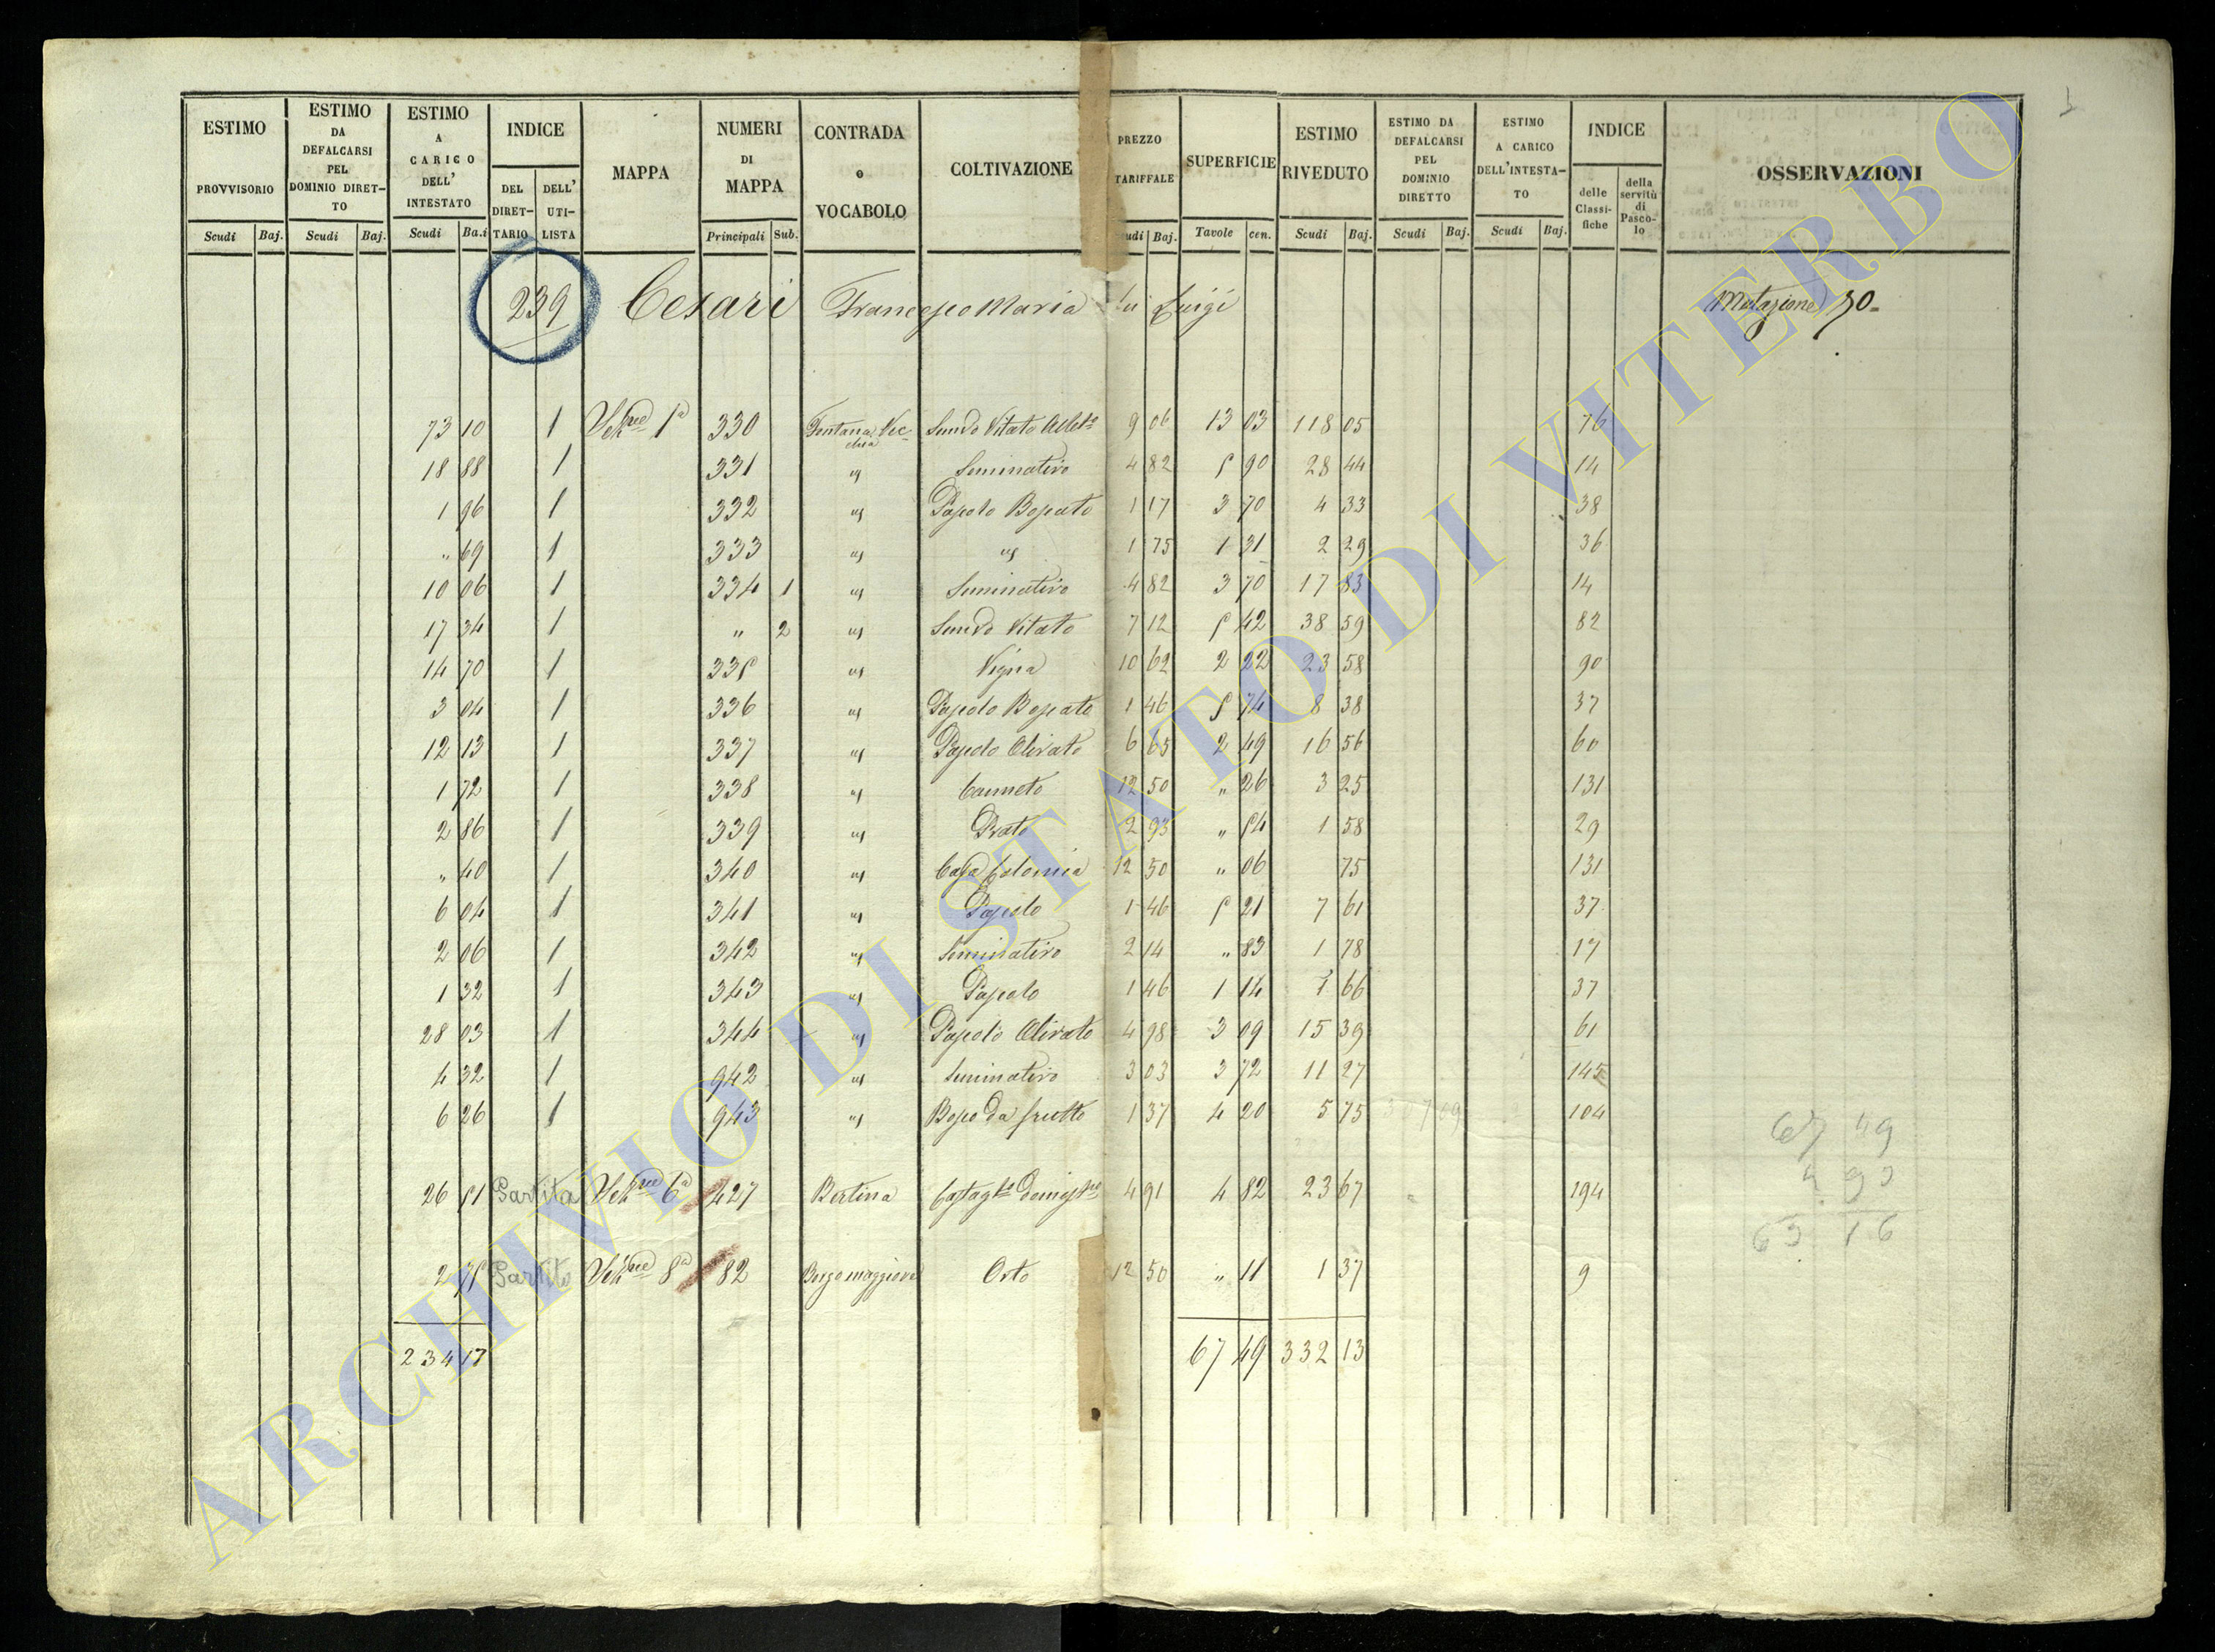 ESTIMO PROVVISORIO | ESTIMO DA DEFALCARSI PEL DOMINIO DIRETTO | ESTIMO A CARICO DELL' INTESTATO | INDICE DEL DIRETTARIO | DELL' UTILISTA | MAPPA | NUMERI DI MAPPA | CONTRADA o VOCABOLO | COLTIVAZIONE | PREZZO TARIFFALE | SUPERFICIE | ESTIMO RIVEDUTO | ESTIMO DA DEFALCARSI PEL DOMINIO DIRETTO | ESTIMO A CARICO DELL'INTESTATO | INDICE delle Classifiche | della servitù di Pascolo | OSSERVAZIONI
Scudi Baj. Scudi Baj. Scudi Ba.i Principali Sub. udi Baj. Tavole cen. Scudi Baj. Scudi Baj. Scudi Baj.
239 Cesari Francesco Maria Luigi Mutazione 30
73 10 1 1ª 330 Fontana Vecchia Vitato 9 06 13 03 118 05 76
18 88 1 331 " Seminativo 4 82 5 90 28 44 14
1 96 1 332 " Pascolo Boscato 1 17 3 70 4 33 38
" 69 1 333 " " 1 75 1 31 2 29 36
10 06 1 334 1 " Seminativo 4 82 3 70 17 83 14
17 34 1 " 2 " Semvo Vitato 7 12 5 42 38 59 82
14 70 1 335 " Vigna 10 62 2 22 23 58 90
3 04 1 336 " Pascolo Boscato 1 46 5 74 8 38 37
12 13 1 337 " Pascolo Olivato 6 65 2 49 16 56 60
1 72 1 338 " Canneto 12 50 " 26 3 25 131
2 86 1 339 " Prato 2 93 " 54 1 58 29
" 40 1 340 " Casa Colonica 12 50 " 06 75 131
6 04 1 341 " Pascolo 1 46 5 21 7 61 37
2 06 1 342 " Seminativo 2 14 " 83 1 78 17
1 32 1 343 " Pascolo 1 46 1 14 1 66 37
28 03 1 344 " Pascolo Olivato 4 98 3 09 15 39 61
4 32 1 942 " Seminativo 3 03 3 72 11 27 145
6 26 1 943 " Bosco da frutto 1 37 4 20 5 75 104
67 49
26 51 Partita 6ª 427 Bertina 4 91 4 82 23 67 194
63 16
2 75 Partito 8ª 82 Borgo maggiore Orto 12 50 " 11 1 37 9
234 17 67 49 332 13
ARCHIVIO DI STATO DI VITERBO